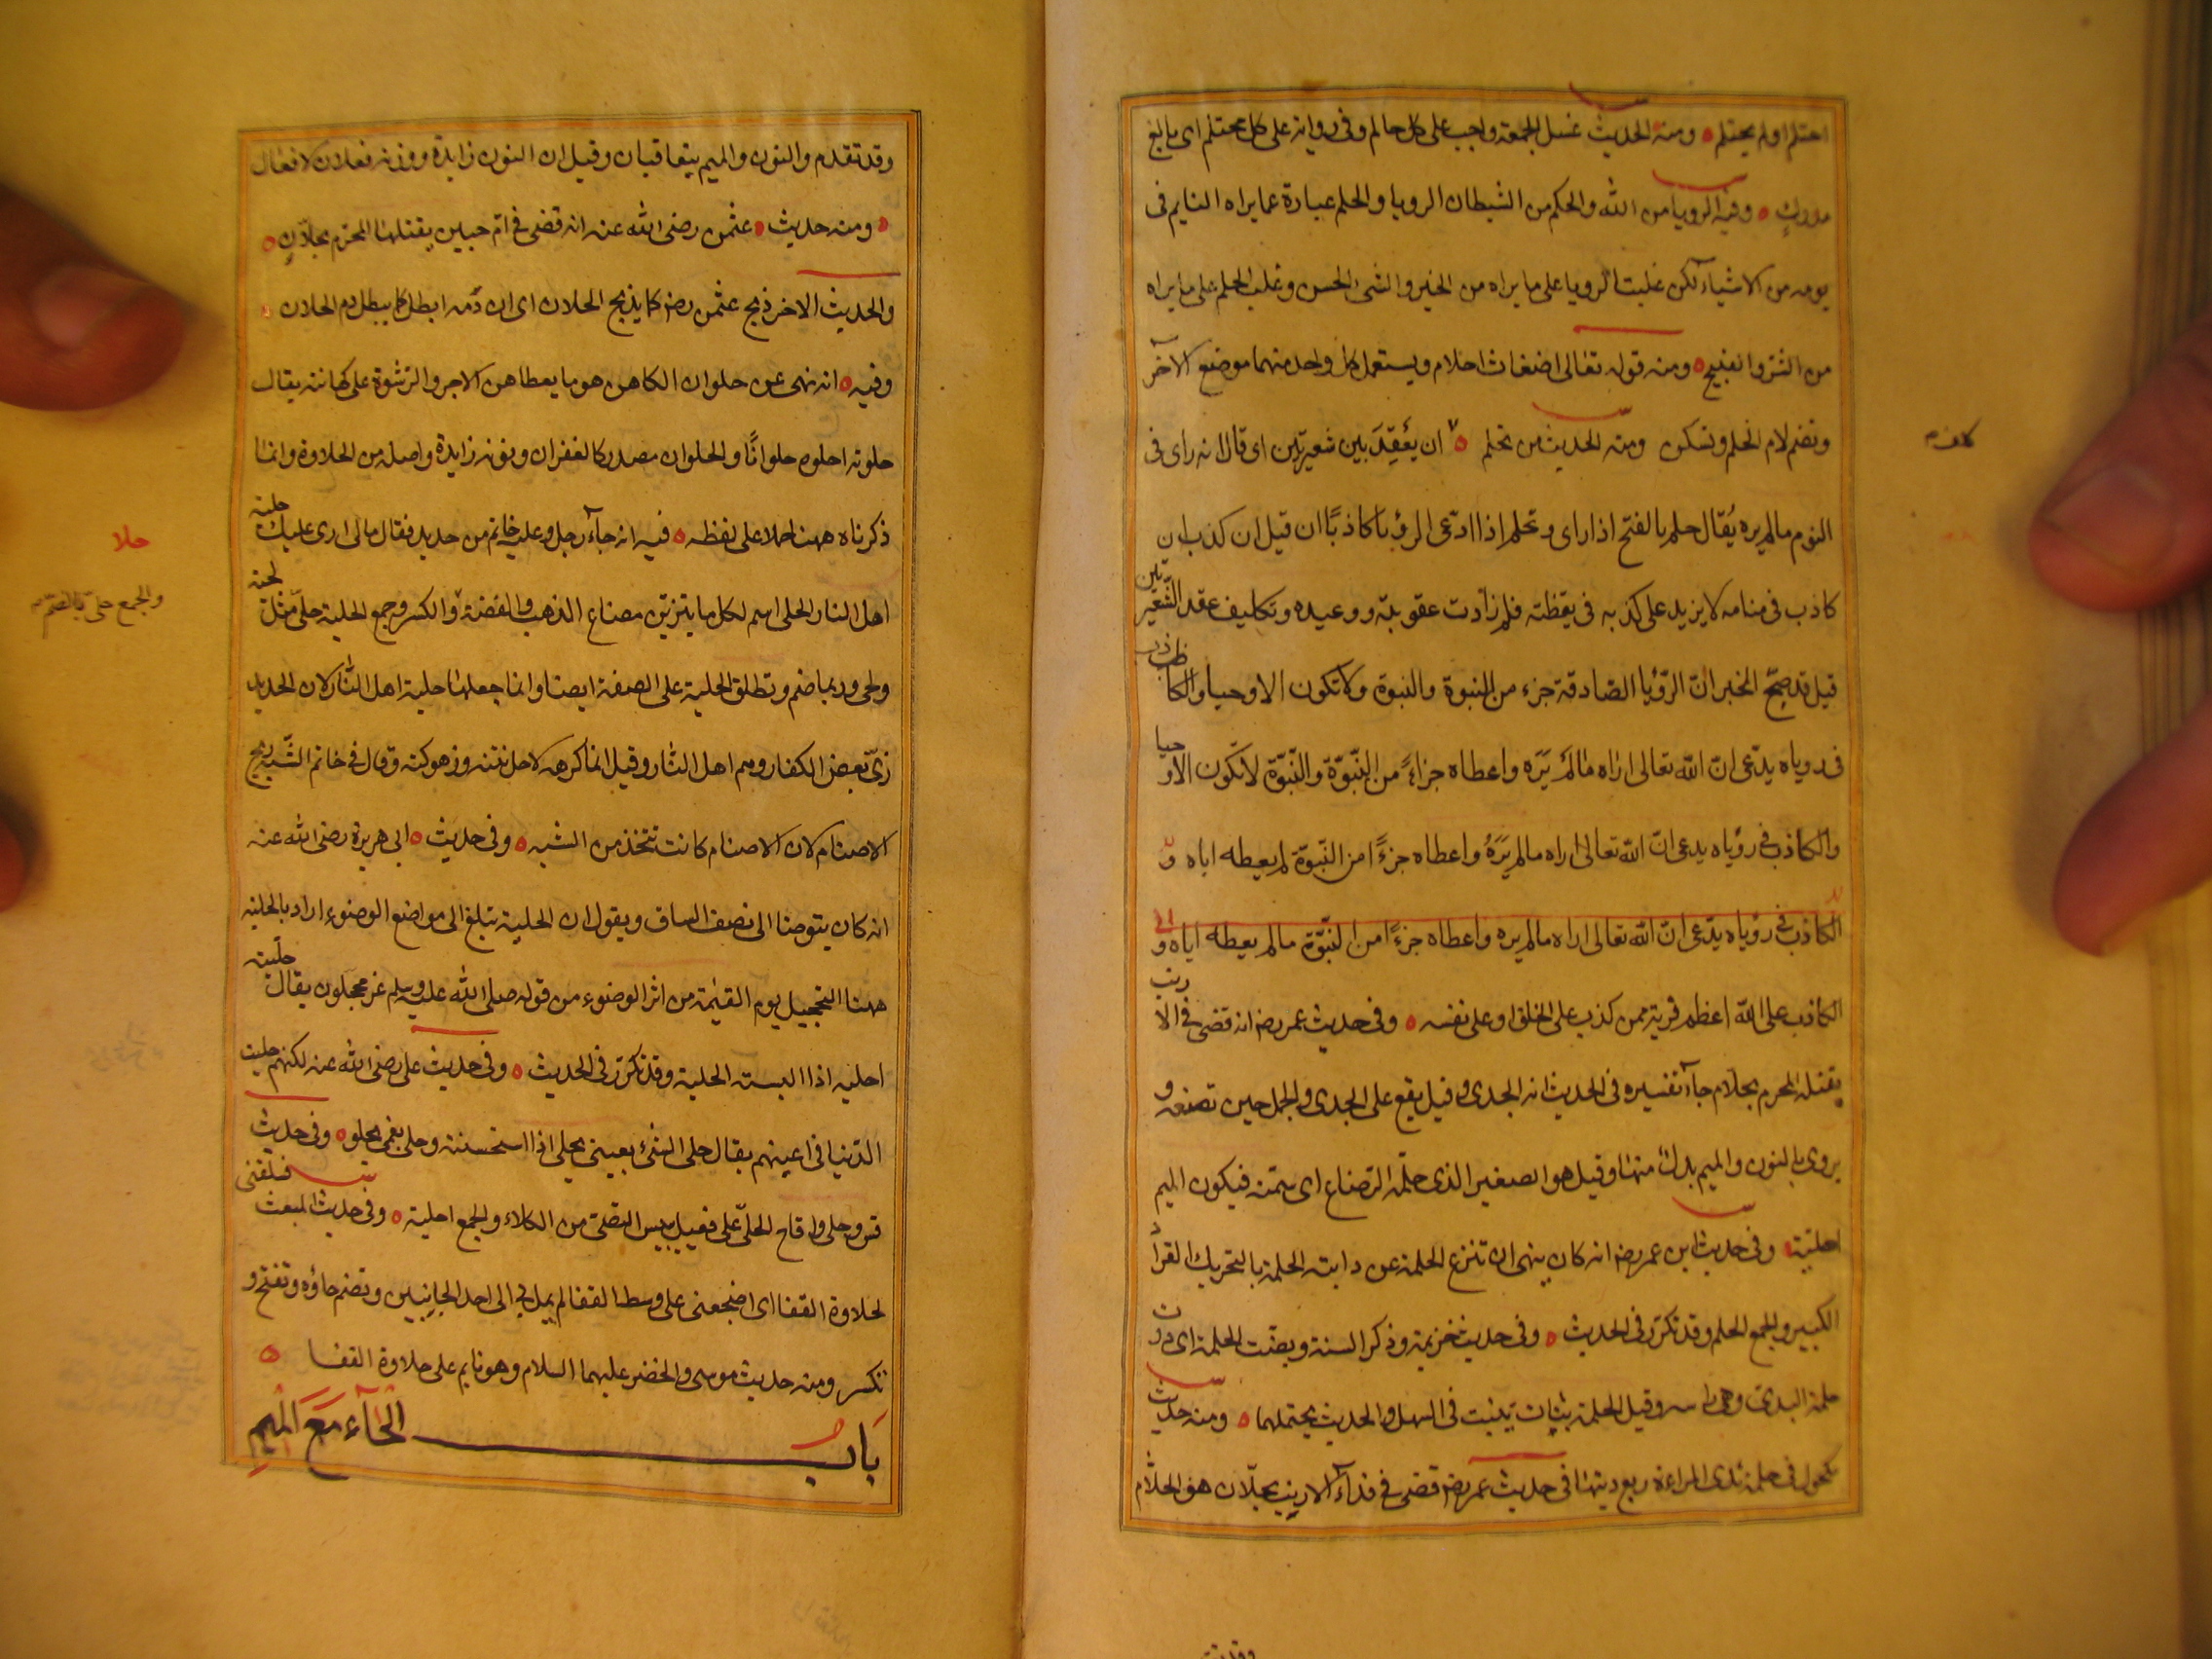 احتلم اولم يحتلم ومنه الحديث غسل الجمعة واجب على كل حالم وفى رواية على كل محتلم اى بالغ
مدرك وفيه الرويا من الله والحكم من الشيطان الرويا والحلم عبارة عما يراه النايم فى
يومه من الاشياء لكن غلبت الرويا على ما يراه من الخير والشئ الحسن وغلب الحلم على ما يراه
من الشر والقبيح ومنه قوله تعالى اضغاث احلام ويستعمل كل واحد منهما موضع الآخر
وتضم لام الحلم وتسكن ومنه الحديث من تحلم ان يعقد بين شعيرتين اى قال انه راى فى
النوم مالم يره يقال حلم بالفتح اذا راى وتحلم اذا ادعى الرؤيا كاذبًا ان قيل ان كذب
كاذب فى منامه لا يزيد على كذبه فى يقظته فلم زادت عقوبته ووعيده وتكليف عقد الشعيرتين
قيل قد صحّ الخبر انّ الرؤيا الصّادقة جزء من النبوة والنبوة ولا تكون الا وحيا والكاذب
فى دوياه يدّعى انّ الله تعالى اراه مالم يَرَه واعطاه جزاءً من النّبوّة والنّبوّة لا تكون الا وحيا
والكاذب فى رؤياه يدعى انّ الله تعالى اراه مالم يَرَهُ واعطاه جزءًا من النّبوّة لم يعطه اياه و
الكاذب فى رؤياه يدّعى انّ الله تعالى اراه مالم يره واعطاه جزءًا من النّبوّة مالم يعطه اياه و
الكاذب على الله اعظم فرية ممن كذب على الخلق او على نفسه وفى حديث عمر رضه انه قضى فى الارنب
يقتله المحرم بحلام جآء تفسيره فى الحديث انه الجدى وقيل يقع على الجدى والحمل حين تضعه و
يروى بالنون والميم بدل منها وقيل هو الصغير الذى حلّمه الرّضاع اى سمّنه فيكون الميم
اصليّة وفى حديث ابن عمر رضه انه كان ينهى ان تنزع الحلمة عن دابته الحلمة بالتحريك القراد
الكبير والجمع الحلم وقد تكرّر فى الحديث وفى حديث خزيمة وذكر السنة وبضّت الحلمة اى درّت
حلمة الثدى وهى راسه وقيل الحلمة نبات ينبت فى السهل والحديث يحتملهما ومنه حديث
مكحول فى حلمة ثدى المراءة ربع ديتها فى حديث عمر رضه قضى فى فدآء الارنب بحلّان هو الحلّام
وقد تقدم والنون والميم يتعاقبان وقيل ان النون زايدة ووزنه فعلان لا فعّال
ومنه حديث عثمن رضى الله عنه انه قضى فى امّ حبين يقتلها المحرم بحلّان
والحديث الاخر ذبح عثمن رضه كما يذبح الحلان اى ان دمه ابطل كما يبطل دم الحلان
وفيه انه نهى عن حلوان الكاهن هو ما يعطاه من الاجر والرّشوة على كهانته يقال
حلوته احلوه حلوانًا والحلوان مصدر كالغفران ونونه زايدة واصله من الحلاوة وانما
ذكرناه ههنا حملا على لفظه فيه انه جآء رجل وعليه خاتم من حديد فقال مالى ارى عليك حلية
اهل النار الحلى اسم لكل ما يتزيّن مصناع الذهب والفضة والكسر وجمع الحلية حلى مثل لحية
ولحى وربما ضم وتطلق الحلية على الصفة ايضا وانما جعلها حلية اهل النّار لان الحديد
زىّ بعض الكفار وهم اهل النّار وقيل انما كرهه لاجل نتنه وزهوكته وقال فى خاتم الشّبه ريح
الاصنام لان الاصنام كانت تتخذ من الشبه وفى حديث ابى هريرة رضى الله عنه
انه كان يتوضا الى نصف الساق ويقول ان الحلية تبلغ الى مواضع الوضوء اراد بالحلية
ههنا التحجيل يوم القيٰمة من اثر الوضوء من قوله صلى الله عليه وسلم غر محجلون يقال حلّيته
احليه اذا البسته الحلية وقد تكرّر فى الحديث وفى حديث على رضى الله عنه لكنهم حليت
الدّنيا فى اعينهم يقال حلى الشئ بعينى يحلى اذا استحسنته وحلى بفمى يحلو وفى حديث
قس وحلى واقاح الحلىّ على فعيل يبيس النصىّ من الكلاء والجمع احلية وفى حديث المبعث فسلقنى
لحلاوة القفا اى اضجعنى على وسط القفا لم يمل بى الى احد الجانبين وتضم حاؤه وتفتح و
تكسر ومنه حديث موسى والخضر عليهما السلام وهو نايم على حلاوة القفا
بَاب الحَآء مَعَ الْمِيمِ
حلا
والجمع حلىّ بالضم